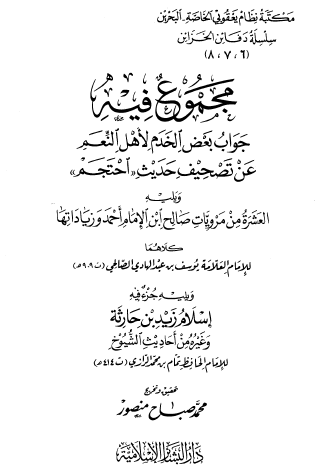 مكتبة نظام يعقوبي الخاصة - البحرين
سلسلة دفائن الخزائن
(٦، ٧، ٨)
مجموع فيه
جواب بعض الخدم لأهل النعم
عن تصحيف حديث «احتجم»
ويليه
العشرة من مرويات صالح ابن الإمام أحمد وزياداتها
كلاهما
للإمام العلامة يوسف بن عبد الهادي الصالحي (ت ٩٠٩هـ)
ويليه جزء فيه
إسلام زيد بن حارثة
وغيره من أحاديث الشيوخ
للإمام الحافظ تمام بن محمد الرازي (ت ٤١٤هـ)
تحقيق وتخريج
محمد صباح منصور
دار البشائر الإسلامية